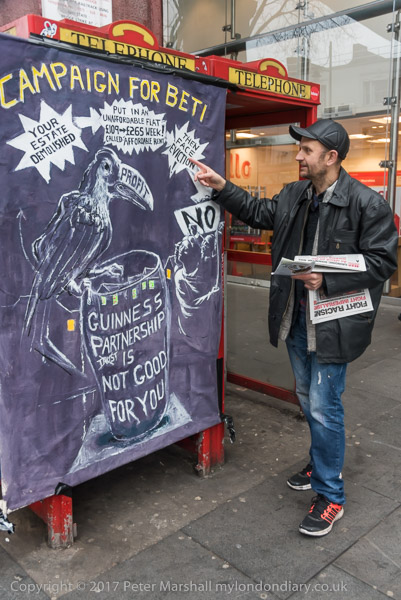 TELEPHONE
TELEPHONE
CAMPAIGN FOR BETI
YOUR
ESTATE
DEMOLISHED
PUT IN AN
UNAFFORDABLE FLAT
£109→£265 WEEK!
CALLED 'AFFORDABLE RENT'
THEN FACE
EVICTION
PROFIT
NO
GUINNESS
PARTNERSHIP
TRUST IS
NOT GOOD
FOR YOU
FIGHT RACISM!
FIGHT IMPERIALISM!
Copyright © 2017 Peter Marshall mylondondiary.co.uk